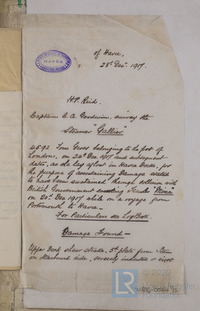 of Havre
28th Decr 1917.
HAVRE
H.P. Reid
Captain C. A. Goodwin, survey the
Steamer "Galliar"
4592 Tons Gross belonging to the port of
London, on 24th Decr 1917 and subsequent
dates, as she lay afloat in Havre Docks for
the purpose of ascertaining Damage stated
to have been sustained through collision with
British Government
on 20th Decr 1917 while on a voyage from
Portsmouth to Havre —
For Particulars see Log Book
Damage Found —
Upper Deck shear strake, 3rd plate from Stem
on Starboard side, severely indented &